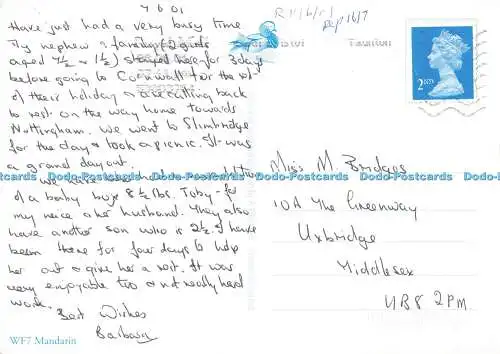 7 6 01
Have just had a very busy time
My nephew & family (2 girls
aged 4½ & 1½) stayed here for 3 days
before going to Cornwall for the rest
of their holiday & are calling back
to rest on the way home towards
Nottingham. We went to Slimbridge
for the day & took a picnic. It was
a grand day out.
We have
of a baby boy 8½ lbs. Toby - for
my neice & her husband. They also
have another son who is 2½. I have
been there for four days to help
her out & give her a rest. It was
very enjoyable too & not really hard
work.
Best Wishes
Barbara
WF7 Mandarin
2ND
Miss M Bridges
10A The Greenway
Uxbridge
Middlesex
UB8 2PM
Dodo-Antiques.com